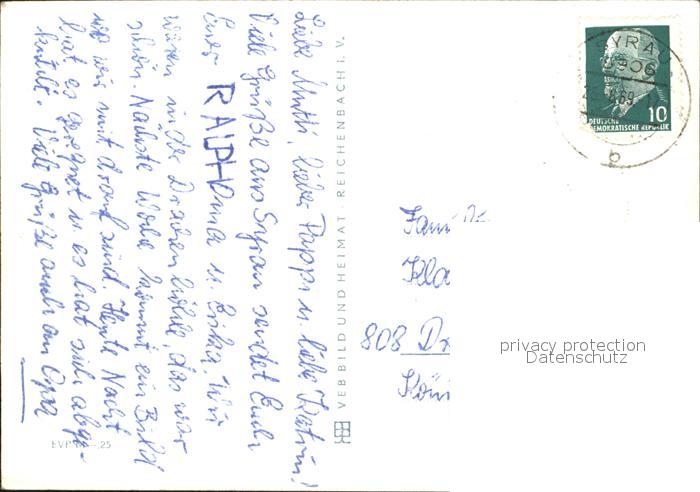 Liebe Mutti, lieber Pappi u. liebe Katrin!
Viele Grüße aus Syrau sendet Euch
Euer RALPH Oma u. Erika, wir
waren in der Drachenhöhle, das war
schön. Nächste Woche kommt ein Bild
wo wir mit drauf sind. Heute Nacht
hat es geregnet u. es hat sich abge-
kühlt. Viele Grüße auch an Opa
VEB BILD UND HEIMAT REICHENBACH I. V.
EVP
25
SYRAU
9906
69
b
10
DEUTSCHE
DEMOKRATISCHE REPUBLIK
Fam
Kla
808 Dr
Köni
privacy protection
Datenschutz